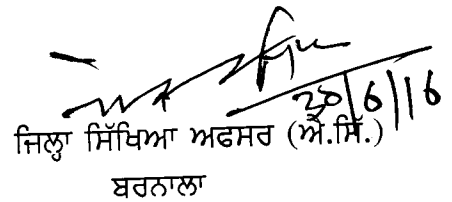 30/6/16
ਜਿਲ੍ਹਾ ਸਿੱਖਿਆ ਅਫਸਰ (ਐ.ਸਿੱ.)
ਬਰਨਾਲਾ